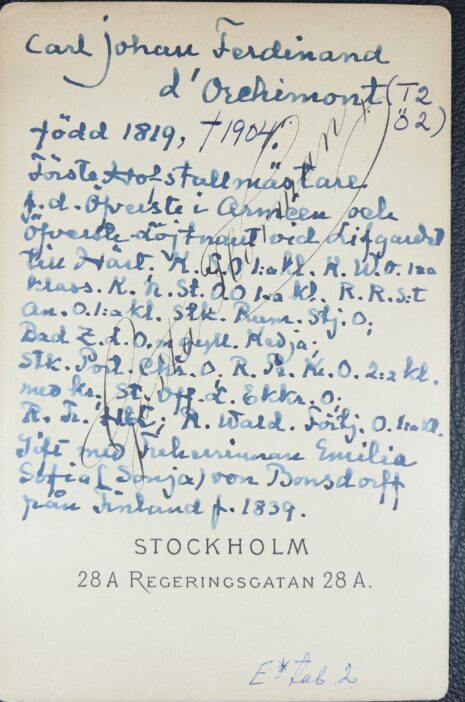 Carl Johan Ferdinand
d'Orchimont (T2
Ö2)
född 1819, †1904.
Förste Hofstallmästare
f.d. Öfverste i Arméen och
Öfverste-Löjtnant vid Lifgardet
till Häst, K. 1:a kl. K. W. O. 1:a
klass. K. N. St. O. O 1:a kl. R. R. S:t
An. O. 1:a kl. Stk. Rum. Stj. O;
Bad Z. L. O. m gyll. Kedja;
Stk. Port. Chr. O, R. Pr. Kr. O. 2:a kl.
med kr, St. Off. d. Ekkr. O;
R. Fr. Hl:, K. Wald. Förtj. O. 1:a kl.
Gift med Friherrinnan Emilia
Sofia (Sonja) von Bonsdorff
från Finland f. 1839.
Gösta Florman
STOCKHOLM
28A REGERINGSGATAN 28A.
E* tab 2